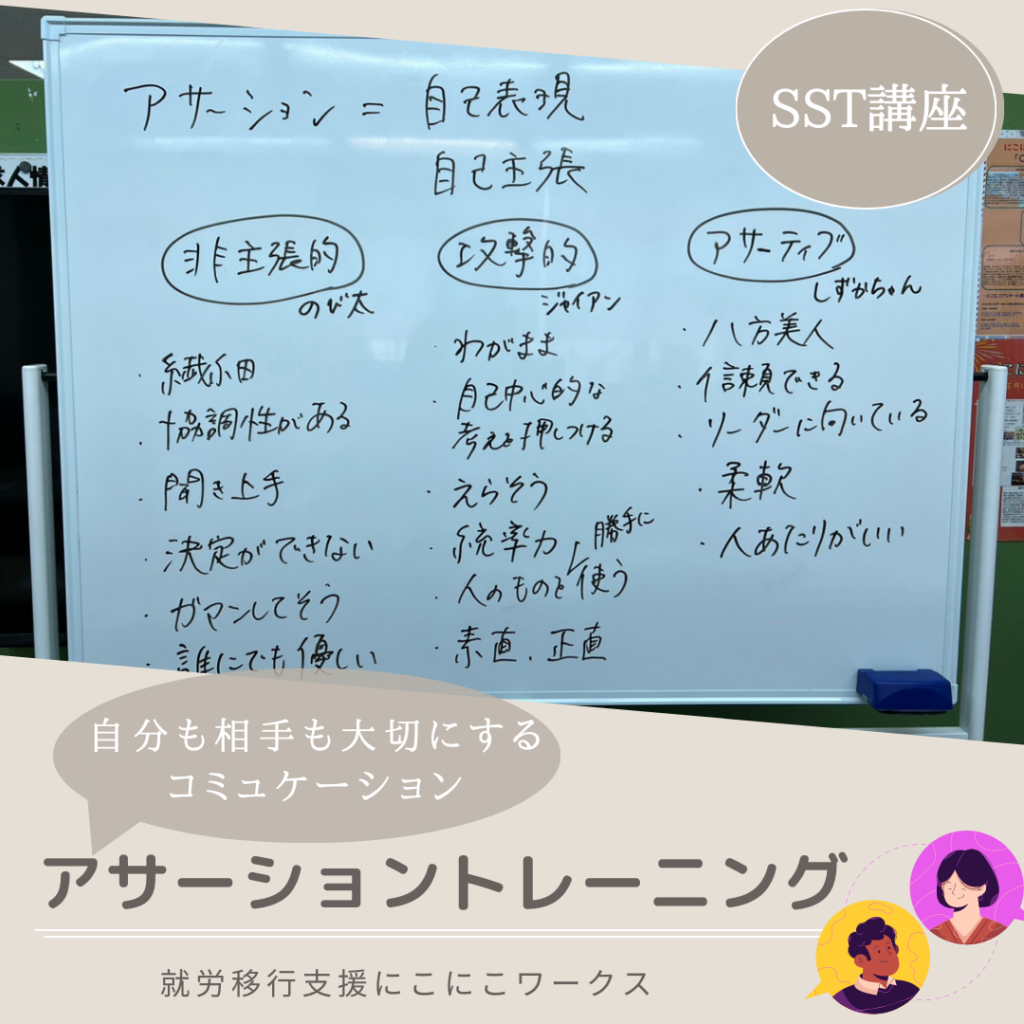 SST講座
アサーション = 自己表現
自己主張
非主張的
のび太
・繊細
・協調性がある
・聞き上手
・決定ができない
・ガマンしてそう
・誰にでも優しい
攻撃的
ジャイアン
・わがまま
・自己中心的な
考えを押しつける
・えらそう
・統率力
勝手に
・人のものを使う
・素直、正直
アサーティブ
しずかちゃん
・八方美人
・信頼できる
・リーダーに向いている
・柔軟
・人あたりがいい
自分も相手も大切にする
コミュケーション
アサーショントレーニング
就労移行支援にこにこワークス